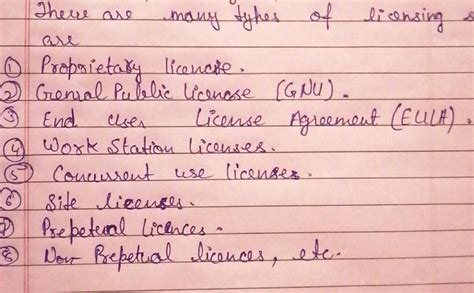 There are many types of licensing s
are
① Proprietary licencse.
② Genral Public licencse (GNU).
③ End User License Agreement (EULA).
④ Work Station Licenses.
⑤ Concurrent use licenses.
⑥ Site licenses.
⑦ Prepetual licences.
⑧ Non Prepetual licences, etc.